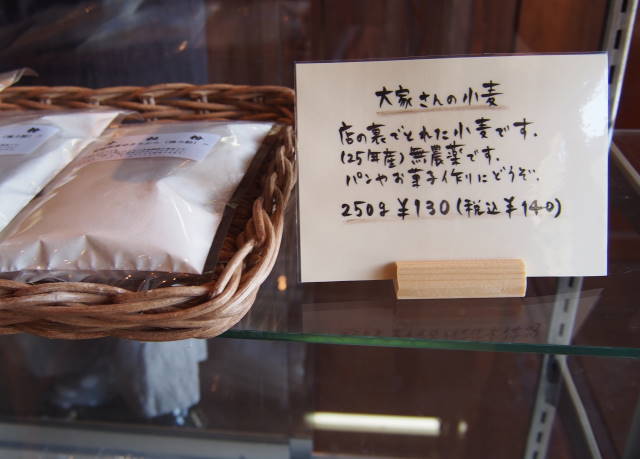 大家さんの小麦
店の裏でとれた小麦です。
(25年産)無農薬です。
パンやお菓子作りにどうぞ。
250g ¥130(税込¥140)